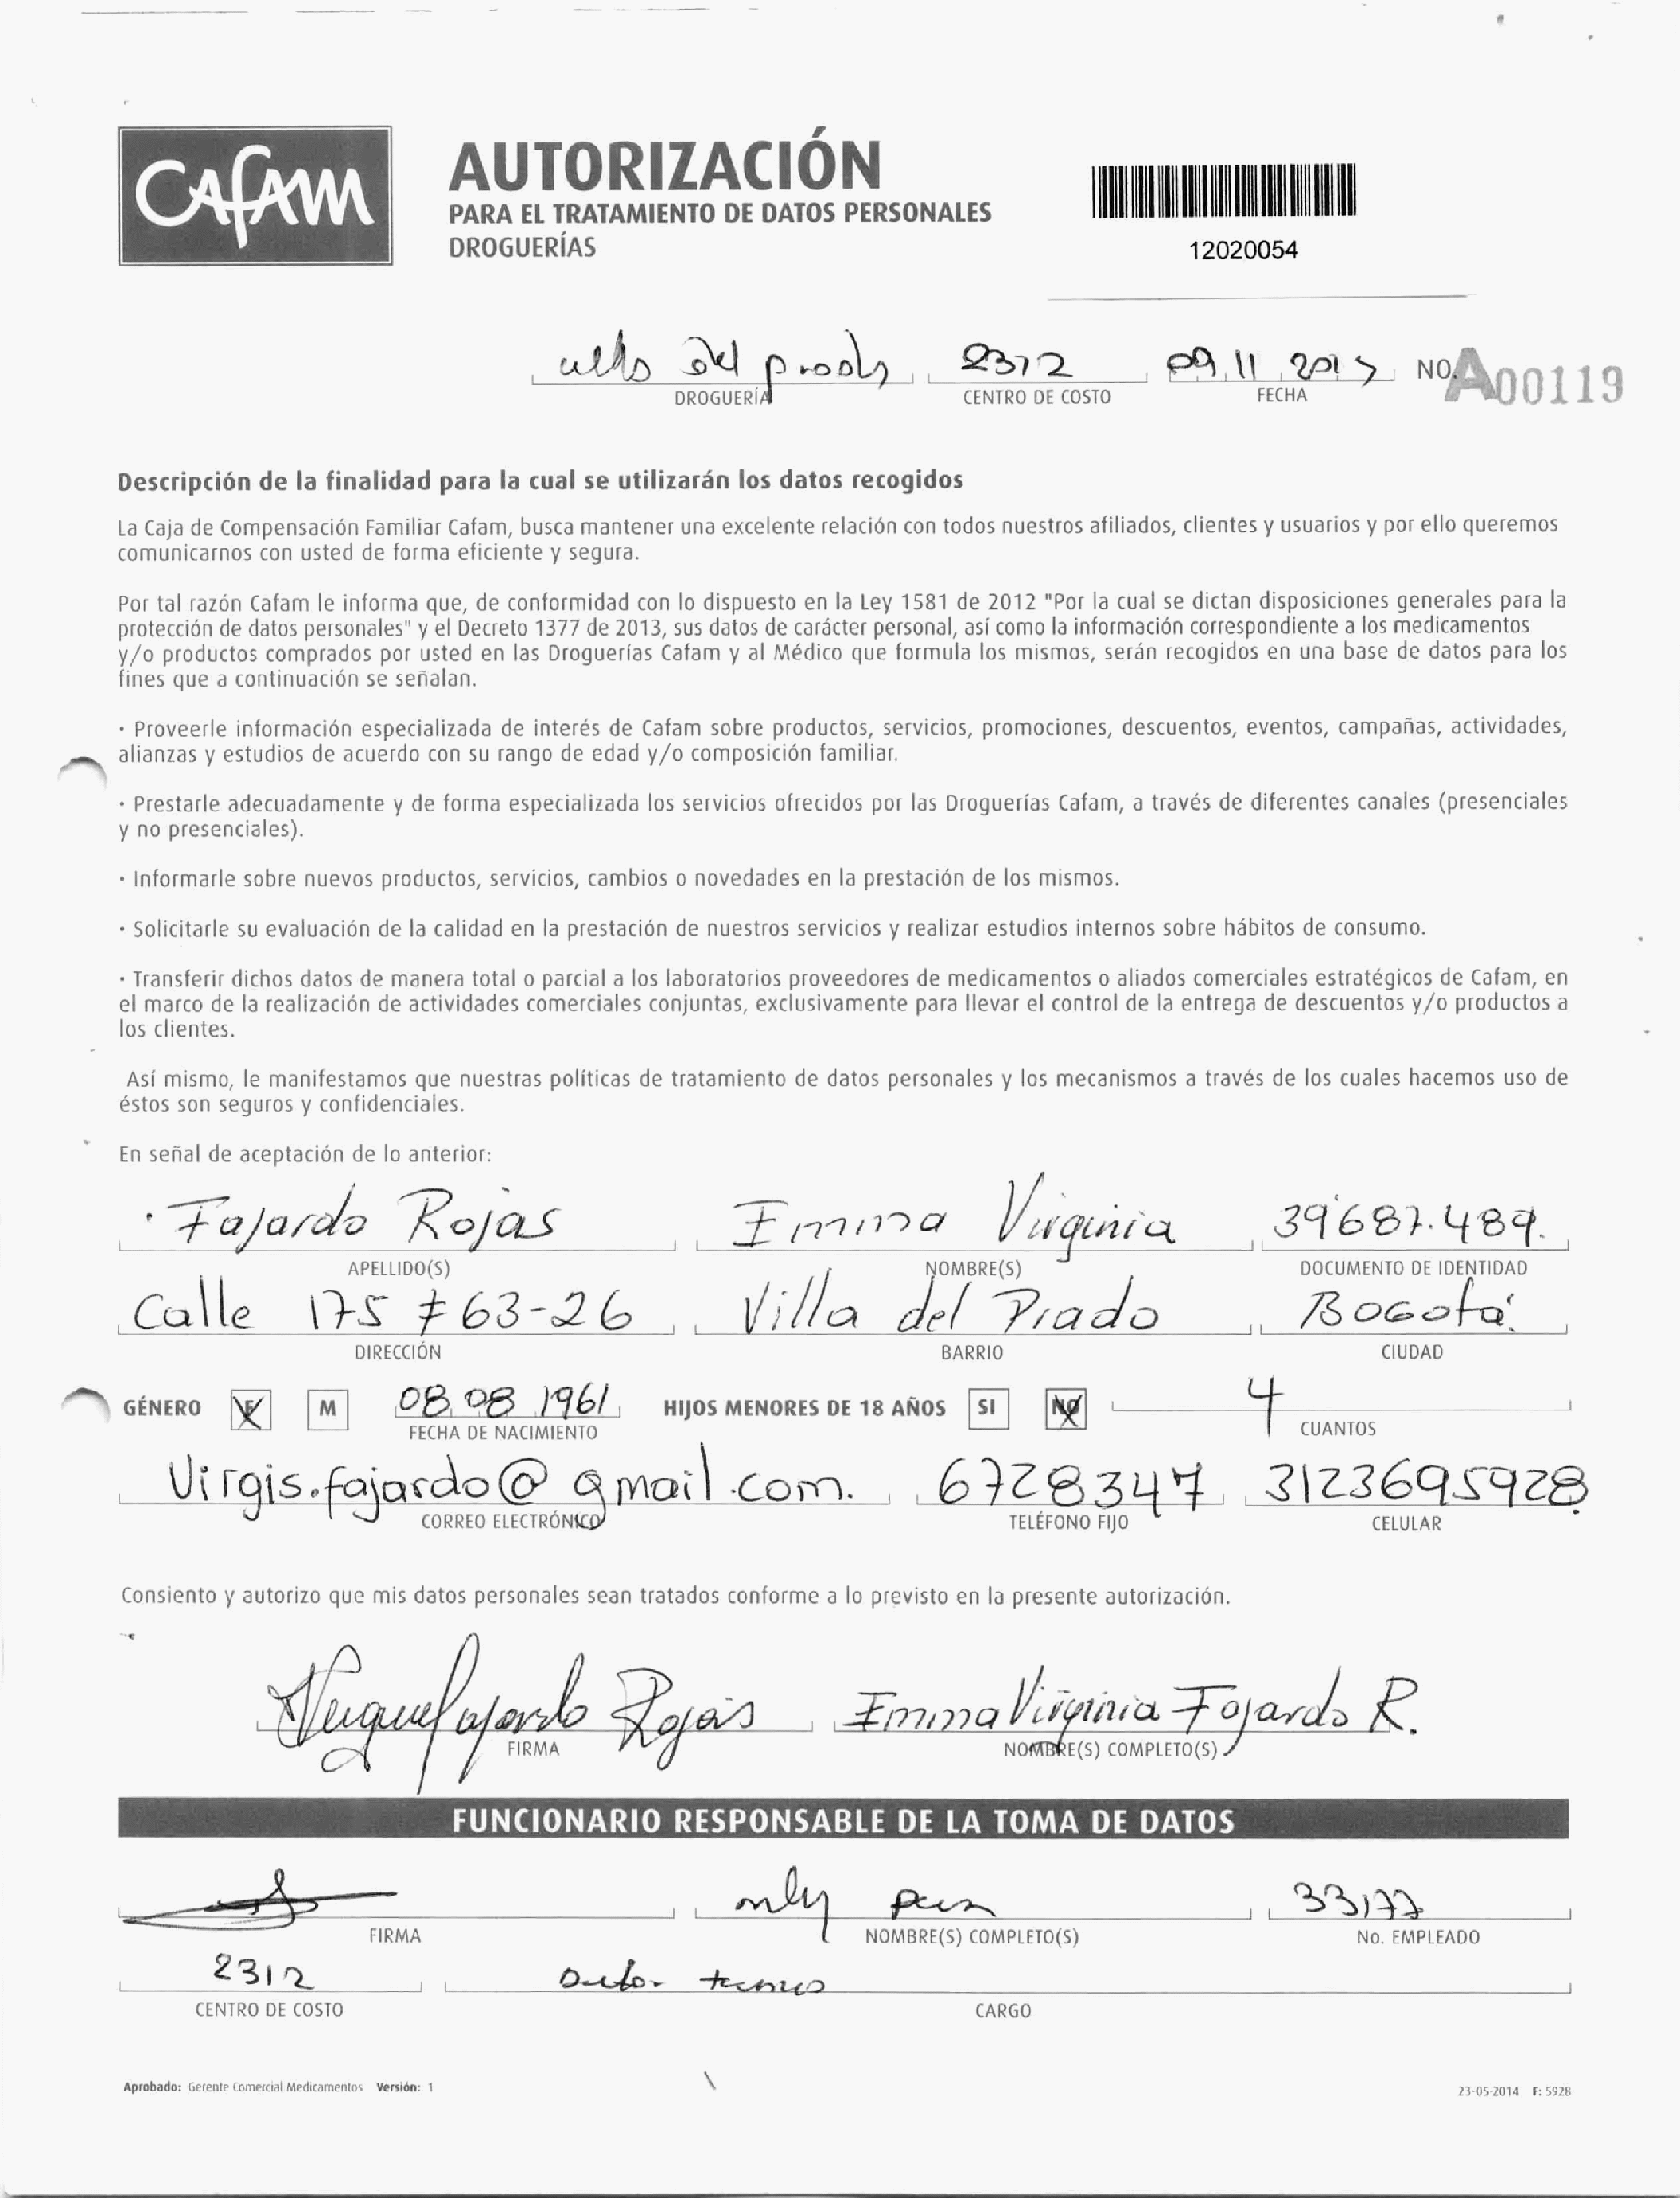 CAFAM
AUTORIZACIÓN
PARA EL TRATAMIENTO DE DATOS PERSONALES
DROGUERÍAS
12020054
del 2312 09 11 2015 NO. A00119
DROGUERÍA CENTRO DE COSTO FECHA
Descripción de la finalidad para la cual se utilizarán los datos recogidos
La Caja de Compensación Familiar Cafam, busca mantener una excelente relación con todos nuestros afiliados, clientes y usuarios y por ello queremos
comunicarnos con usted de forma eficiente y segura.
Por tal razón Cafam le informa que, de conformidad con lo dispuesto en la Ley 1581 de 2012 "Por la cual se dictan disposiciones generales para la
protección de datos personales" y el Decreto 1377 de 2013, sus datos de carácter personal, así como la información correspondiente a los medicamentos
y/o productos comprados por usted en las Droguerías Cafam y al Médico que formula los mismos, serán recogidos en una base de datos para los
fines que a continuación se señalan.
· Proveerle información especializada de interés de Cafam sobre productos, servicios, promociones, descuentos, eventos, campañas, actividades,
alianzas y estudios de acuerdo con su rango de edad y/o composición familiar.
· Prestarle adecuadamente y de forma especializada los servicios ofrecidos por las Droguerías Cafam, a través de diferentes canales (presenciales
y no presenciales).
· Informarle sobre nuevos productos, servicios, cambios o novedades en la prestación de los mismos.
· Solicitarle su evaluación de la calidad en la prestación de nuestros servicios y realizar estudios internos sobre hábitos de consumo.
· Transferir dichos datos de manera total o parcial a los laboratorios proveedores de medicamentos o aliados comerciales estratégicos de Cafam, en
el marco de la realización de actividades comerciales conjuntas, exclusivamente para llevar el control de la entrega de descuentos y/o productos a
los clientes.
Así mismo, le manifestamos que nuestras políticas de tratamiento de datos personales y los mecanismos a través de los cuales hacemos uso de
éstos son seguros y confidenciales.
En señal de aceptación de lo anterior:
Fajardo Rojas Emma Virginia 39687.489.
APELLIDO(S) NOMBRE(S) DOCUMENTO DE IDENTIDAD
Calle 175 # 63-26 Villa del Prado Bogotá
DIRECCIÓN BARRIO CIUDAD
GÉNERO F M 08 08 1961 HIJOS MENORES DE 18 AÑOS SI NO 4
FECHA DE NACIMIENTO CUANTOS
Virgis.fajardo@gmail.com. 6728347 3123695928
CORREO ELECTRÓNICO TELÉFONO FIJO CELULAR
Consiento y autorizo que mis datos personales sean tratados conforme a lo previsto en la presente autorización.
Fajardo Rojas Emma Virginia Fajardo R.
FIRMA NOMBRE(S) COMPLETO(S)
FUNCIONARIO RESPONSABLE DE LA TOMA DE DATOS
33177
FIRMA NOMBRE(S) COMPLETO(S) No. EMPLEADO
2312
CENTRO DE COSTO CARGO
Aprobado: Gerente Comercial Medicamentos Versión: 1
23-05-2014 F: 5928